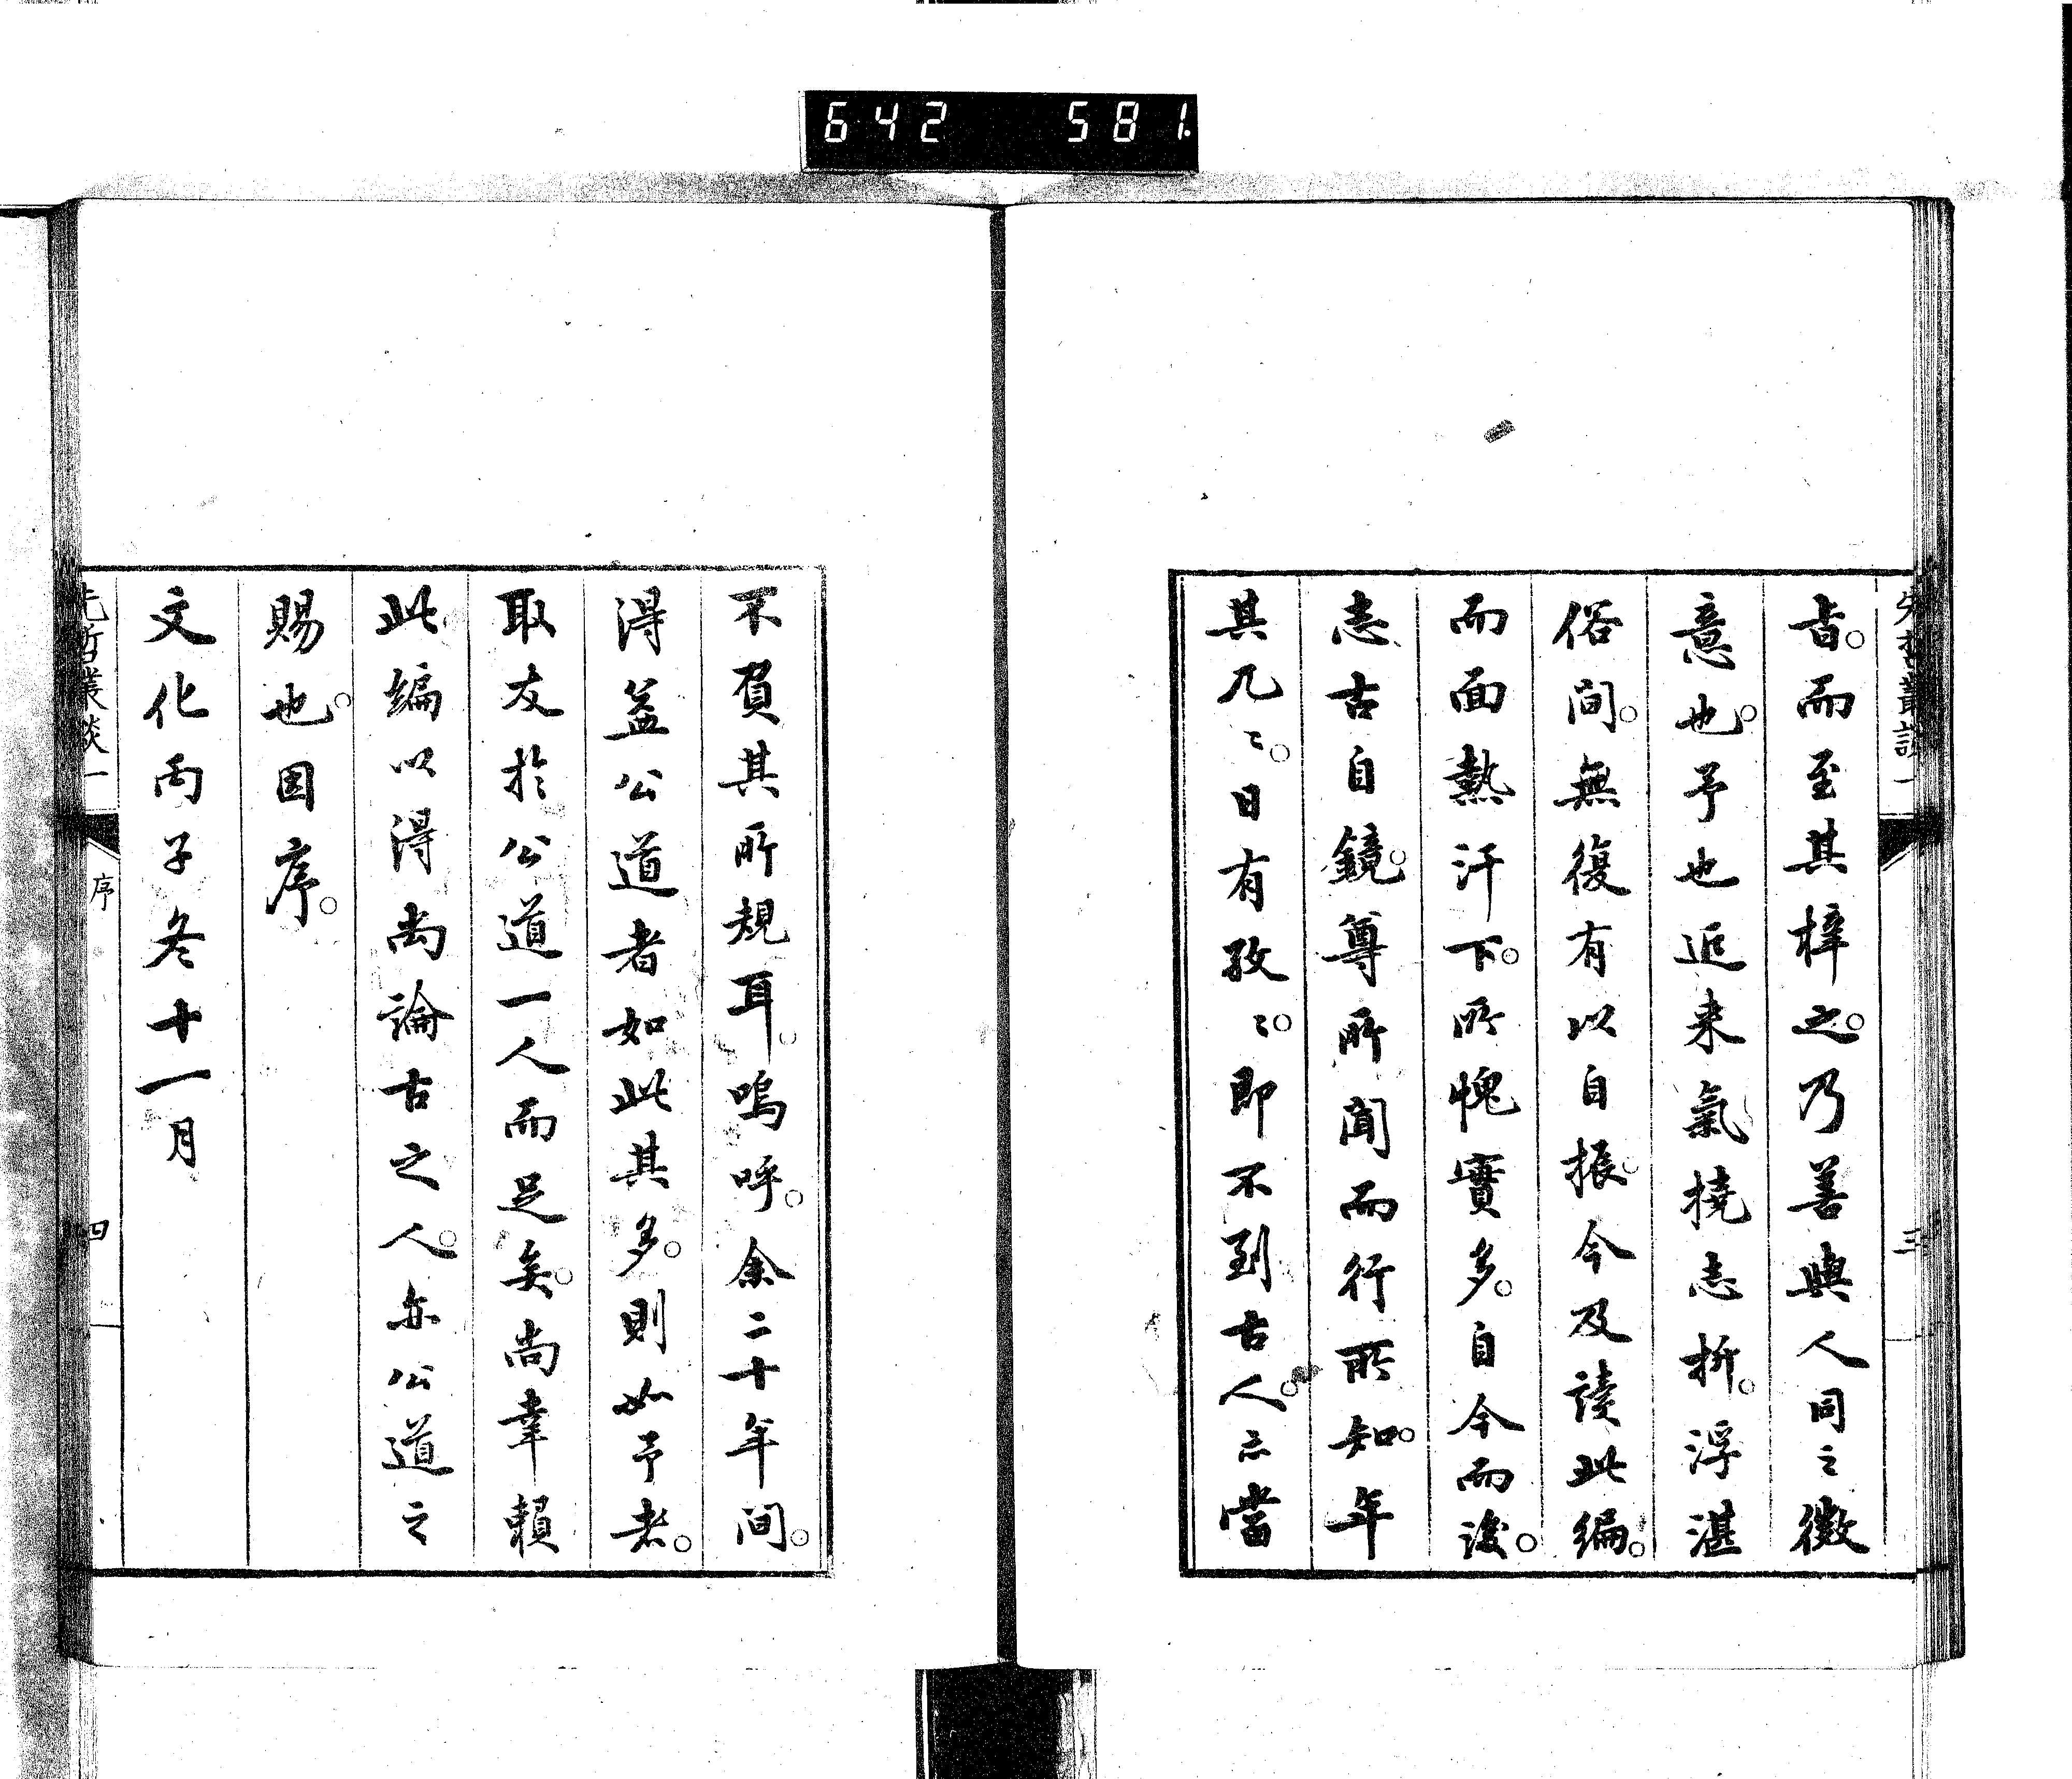 642 581.
先哲叢談一
三
旨。而至其梓之。乃善與人同之徵
意也。予也近来氣撓志折。浮湛
俗間。無復有以自振。今及讀此編。
而面熱汗下。所愧實多。自今而後。
志古自鏡。尊所聞而行所知。年
其几〻。日有孜〻。即不到古人。亦當
不負其所規耳。嗚呼。余二十年間。
得益公道者如此其多。則如予者。
取友於公道一人而足矣。尚幸賴
此編以得尚論古之人。亦公道之
賜也。因序。
文化丙子冬十一月
先哲叢談一
序
四